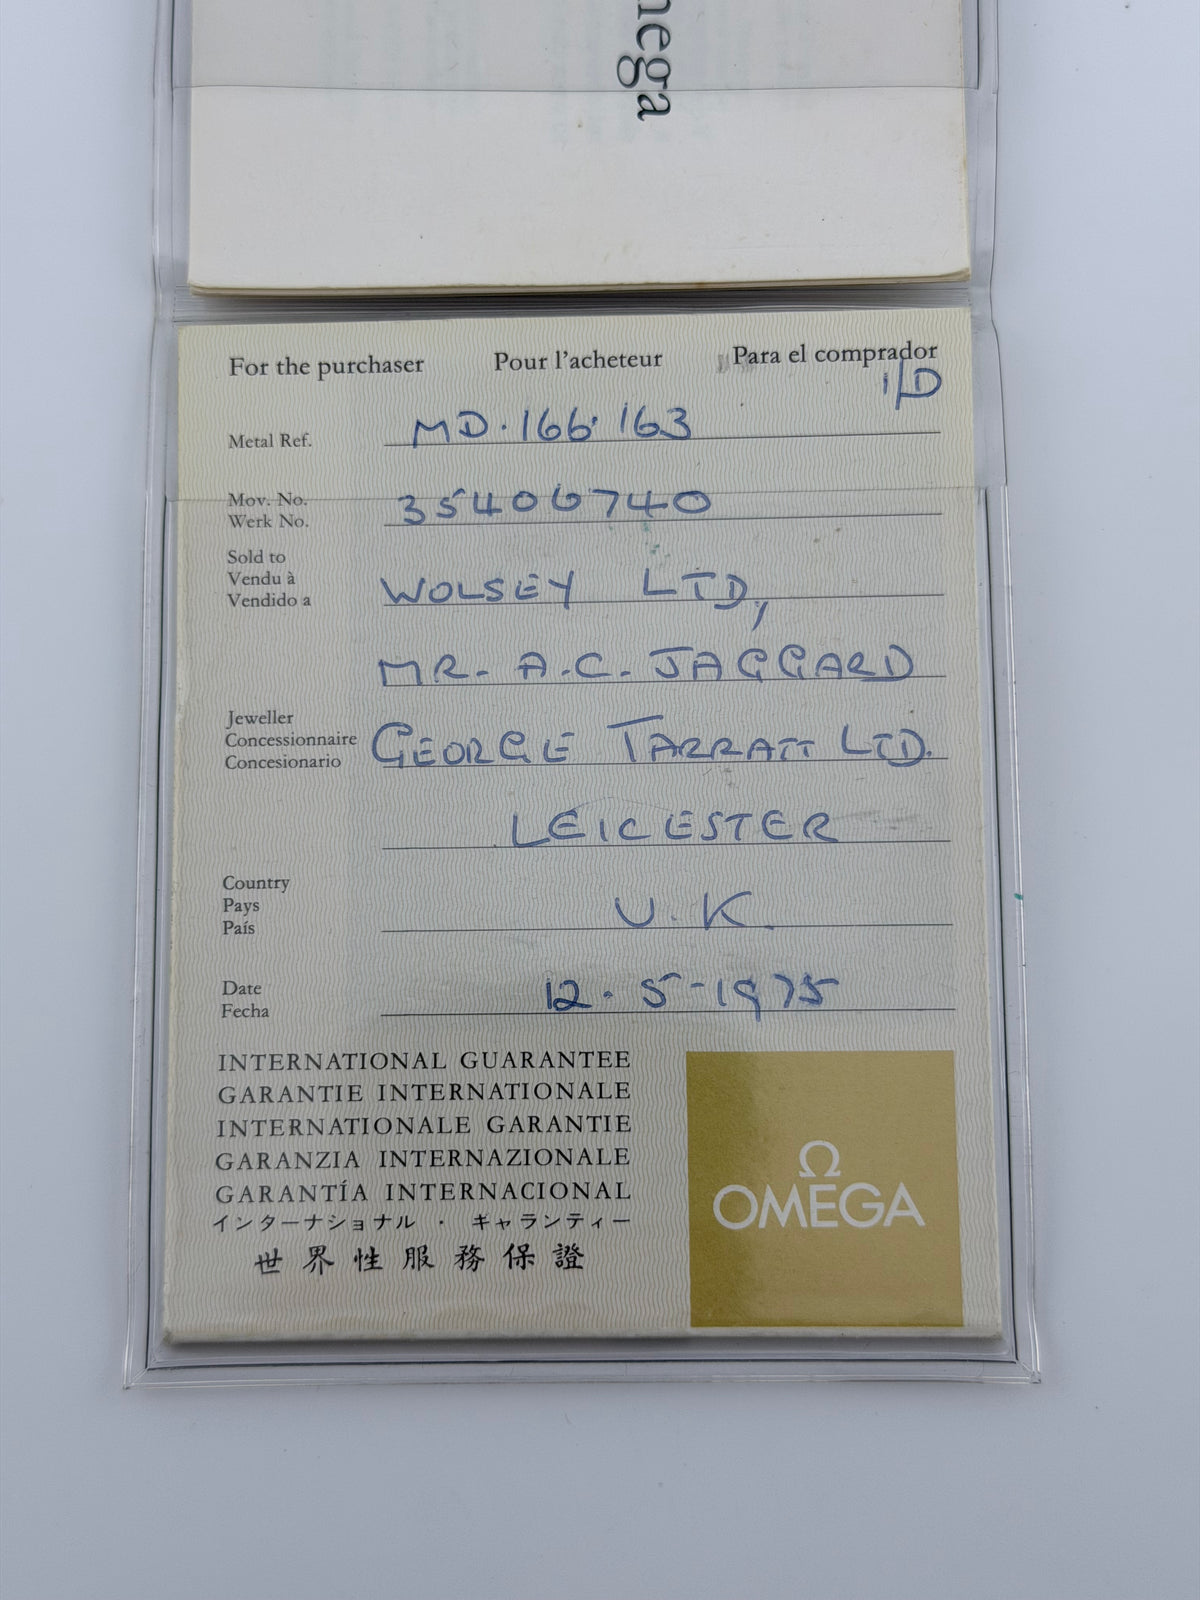 nega
For the purchaser Pour l'acheteur Para el comprador
1/D
Metal Ref. MD.166.163
Mov. No.
Werk No. 35406740
Sold to
Vendu à
Vendido a WOLSEY LTD,
MR. A.C. JAGGARD
Jeweller
Concessionnaire GEORGE TARRATT LTD.
Concesionario
LEICESTER
Country
Pays U.K.
País
Date 12.5-1975
Fecha
INTERNATIONAL GUARANTEE
GARANTIE INTERNATIONALE
INTERNATIONALE GARANTIE
GARANZIA INTERNAZIONALE
GARANTÍA INTERNACIONAL
インターナショナル・ギャランティー
世界性服務保證
Ω
OMEGA